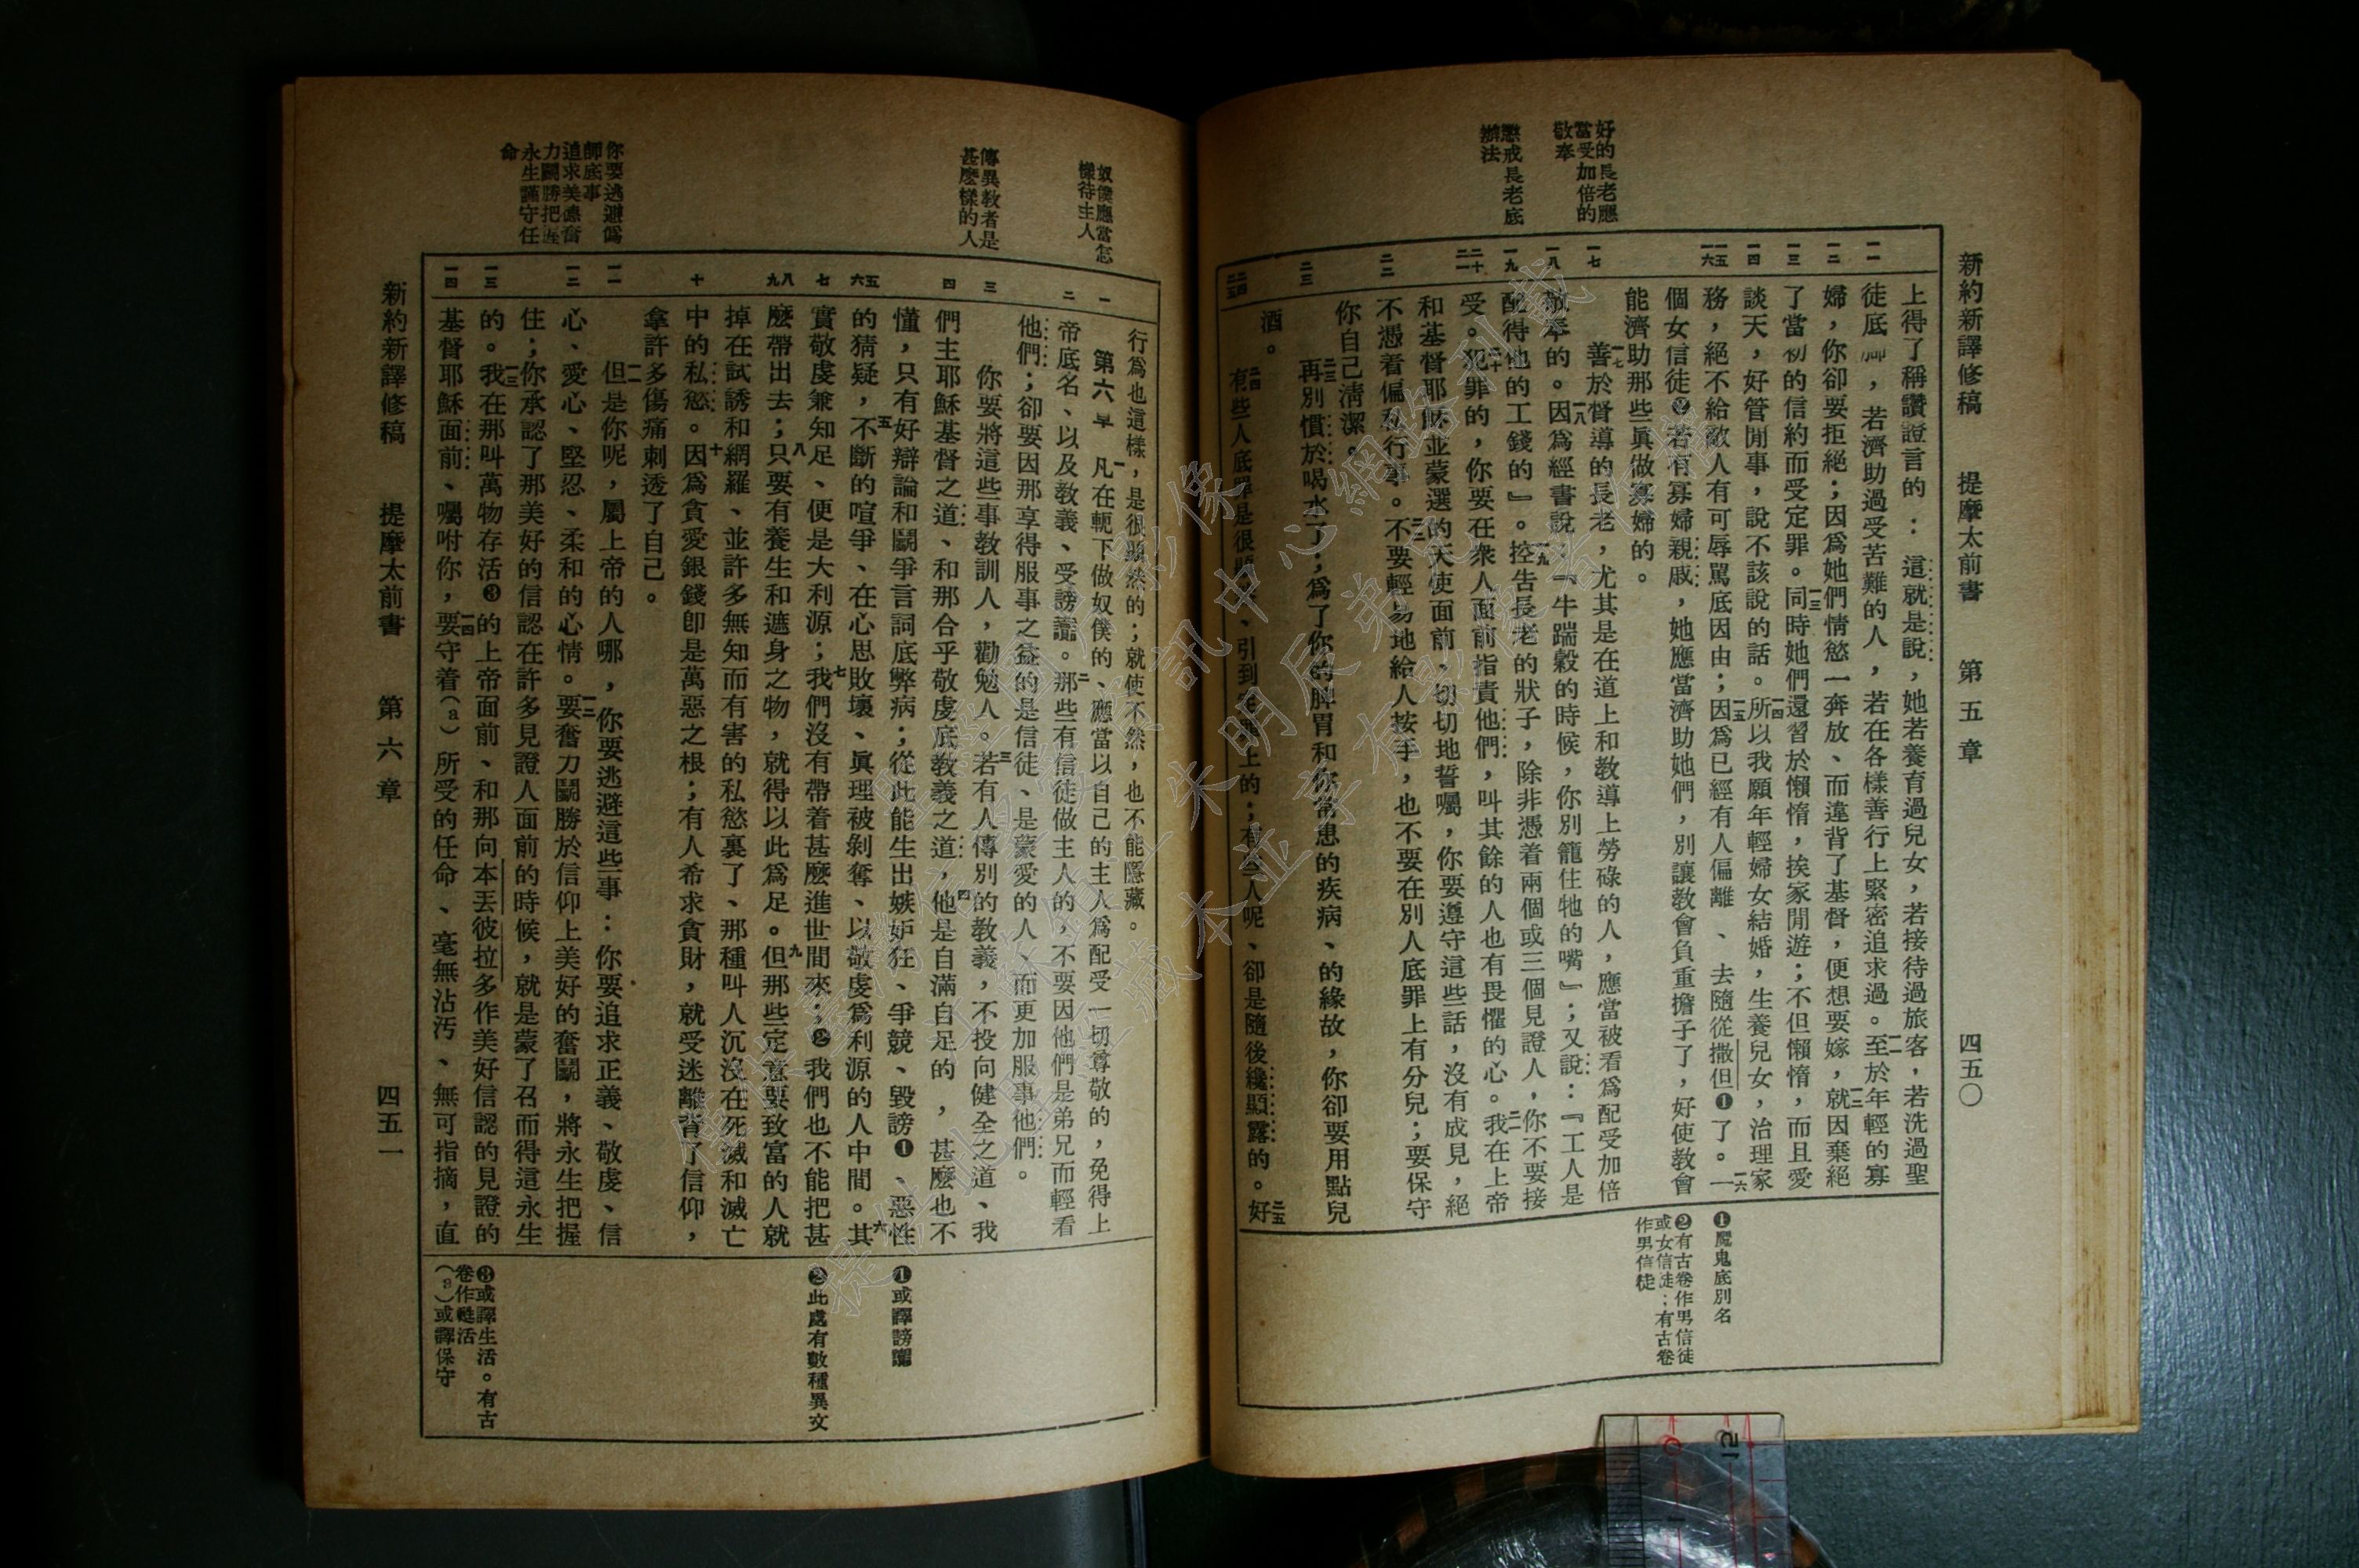 新約新譯修稿　提摩太前書　第五章　四五〇
好的長老應
當受加倍的
敬奉
懲戒長老底
辦法
一一
一二
一三
一四
一五
一六
一七
一八
一九
二十
二一
二二
二三
二四
二五
上得了稱讚證言的：這就是說，她若養育過兒女，若接待過旅客，若洗過聖
徒底腳，若濟助過受苦難的人，若在各樣善行上緊密追求過。一一至於年輕的寡
婦，你卻要拒絕；因爲她們情慾一奔放、而違背了基督，便想要嫁，一二就因棄絕
了當初的信約而受定罪。一三同時她們還習於懶惰，挨家閒遊；不但懶惰，而且愛
談天，好管閒事，說不該說的話。一四所以我願年輕婦女結婚，生養兒女，治理家
務，絕不給敵人有可辱駡底因由；一五因爲已經有人偏離、去隨從撒但❶了。一六一
個女信徒❷若有寡婦親戚，她應當濟助她們，別讓教會負重擔子了，好使教會
能濟助那些眞做寡婦的。
一七善於督導的長老，尤其是在道上和教導上勞碌的人，應當被看爲配受加倍
敬奉的。一八因爲經書說：『牛踹穀的時候，你別籠住牠的嘴』；又說：『工人是
配得他的工錢的』。一九控告長老的狀子，除非憑着兩個或三個見證人，你不要接
受。二十犯罪的，你要在衆人面前指責他們，叫其餘的人也有畏懼的心。二一我在上帝
和基督耶穌並蒙選的天使面前，切切地誓囑，你要遵守這些話，沒有成見，絕
不憑着偏私行事。二二不要輕易地給人按手，也不要在別人底罪上有分兒；要保守
你自己淸潔。
二三再別慣於喝水了；爲了你的脾胃和你常患的疾病、的緣故，你卻要用點兒
酒。
二四有些人底罪是很明顯、引到定罪上的；有些人呢、卻是隨後纔顯露的。二五好
❶魔鬼底別名
❷有古卷作男信徒
或女信徒；有古卷
作男信徒
奴僕應當怎
樣待主人
傳異教者是
甚麼樣的人
你要逃避僞
師底事
追求美德奮
力鬭勝把握
永生謹守任
命
一
二
三
四
五
六
七
八
九
十
一一
一二
一三
一四
行爲也這樣，是很顯然的；就使不然，也不能隱藏。
第六章　一凡在軛下做奴僕的、應當以自己的主人爲配受一切尊敬的，免得上
帝底名、以及教義、受謗讟。二那些有信徒做主人的，不要因他們是弟兄而輕看
他們；卻要因那享得服事之益的是信徒、是蒙愛的人、而更加服事他們。
你要將這些事教訓人，勸勉人。三若有人傳別的教義，不投向健全之道、我
們主耶穌基督之道、和那合乎敬虔底教義之道，四他是自滿自足的，甚麼也不
懂，只有好辯論和鬭爭言詞底弊病；從此能生出嫉妒狂、爭競、毀謗❶、惡性
的猜疑，五不斷的喧爭、在心思敗壞、眞理被剝奪、以敬虔爲利源的人中間。六其
實敬虔兼知足、便是大利源；七我們沒有帶着甚麼進世間來；❷我們也不能把甚
麼帶出去；八只要有養生和遮身之物，就得以此爲足。九但那些定意要致富的人就
掉在試誘和網羅、並許多無知而有害的私慾裏了、那種叫人沉沒在死滅和滅亡
中的私慾。十因爲貪愛銀錢卽是萬惡之根；有人希求貪財，就受迷離背了信仰，
拿許多傷痛刺透了自己。
一一但是你呢，屬上帝的人哪，你要逃避這些事：你要追求正義、敬虔、信
心、愛心、堅忍、柔和的心情。一二要奮力鬭勝於信仰上美好的奮鬭，將永生把握
住；你承認了那美好的信認在許多見證人面前的時候，就是蒙了召而得這永生
的。一三我在那叫萬物存活❸的上帝面前、和那向本丢彼拉多作美好信認的見證的
基督耶穌面前、囑咐你，一四要守着（a）所受的任命、毫無沾汚、無可指摘，直
❶或譯謗讟
❷此處有數種異文
❸或譯生活。有古
卷作甦活
（a）或譯保守
新約新譯修稿　提摩太前書　第六章　四五一